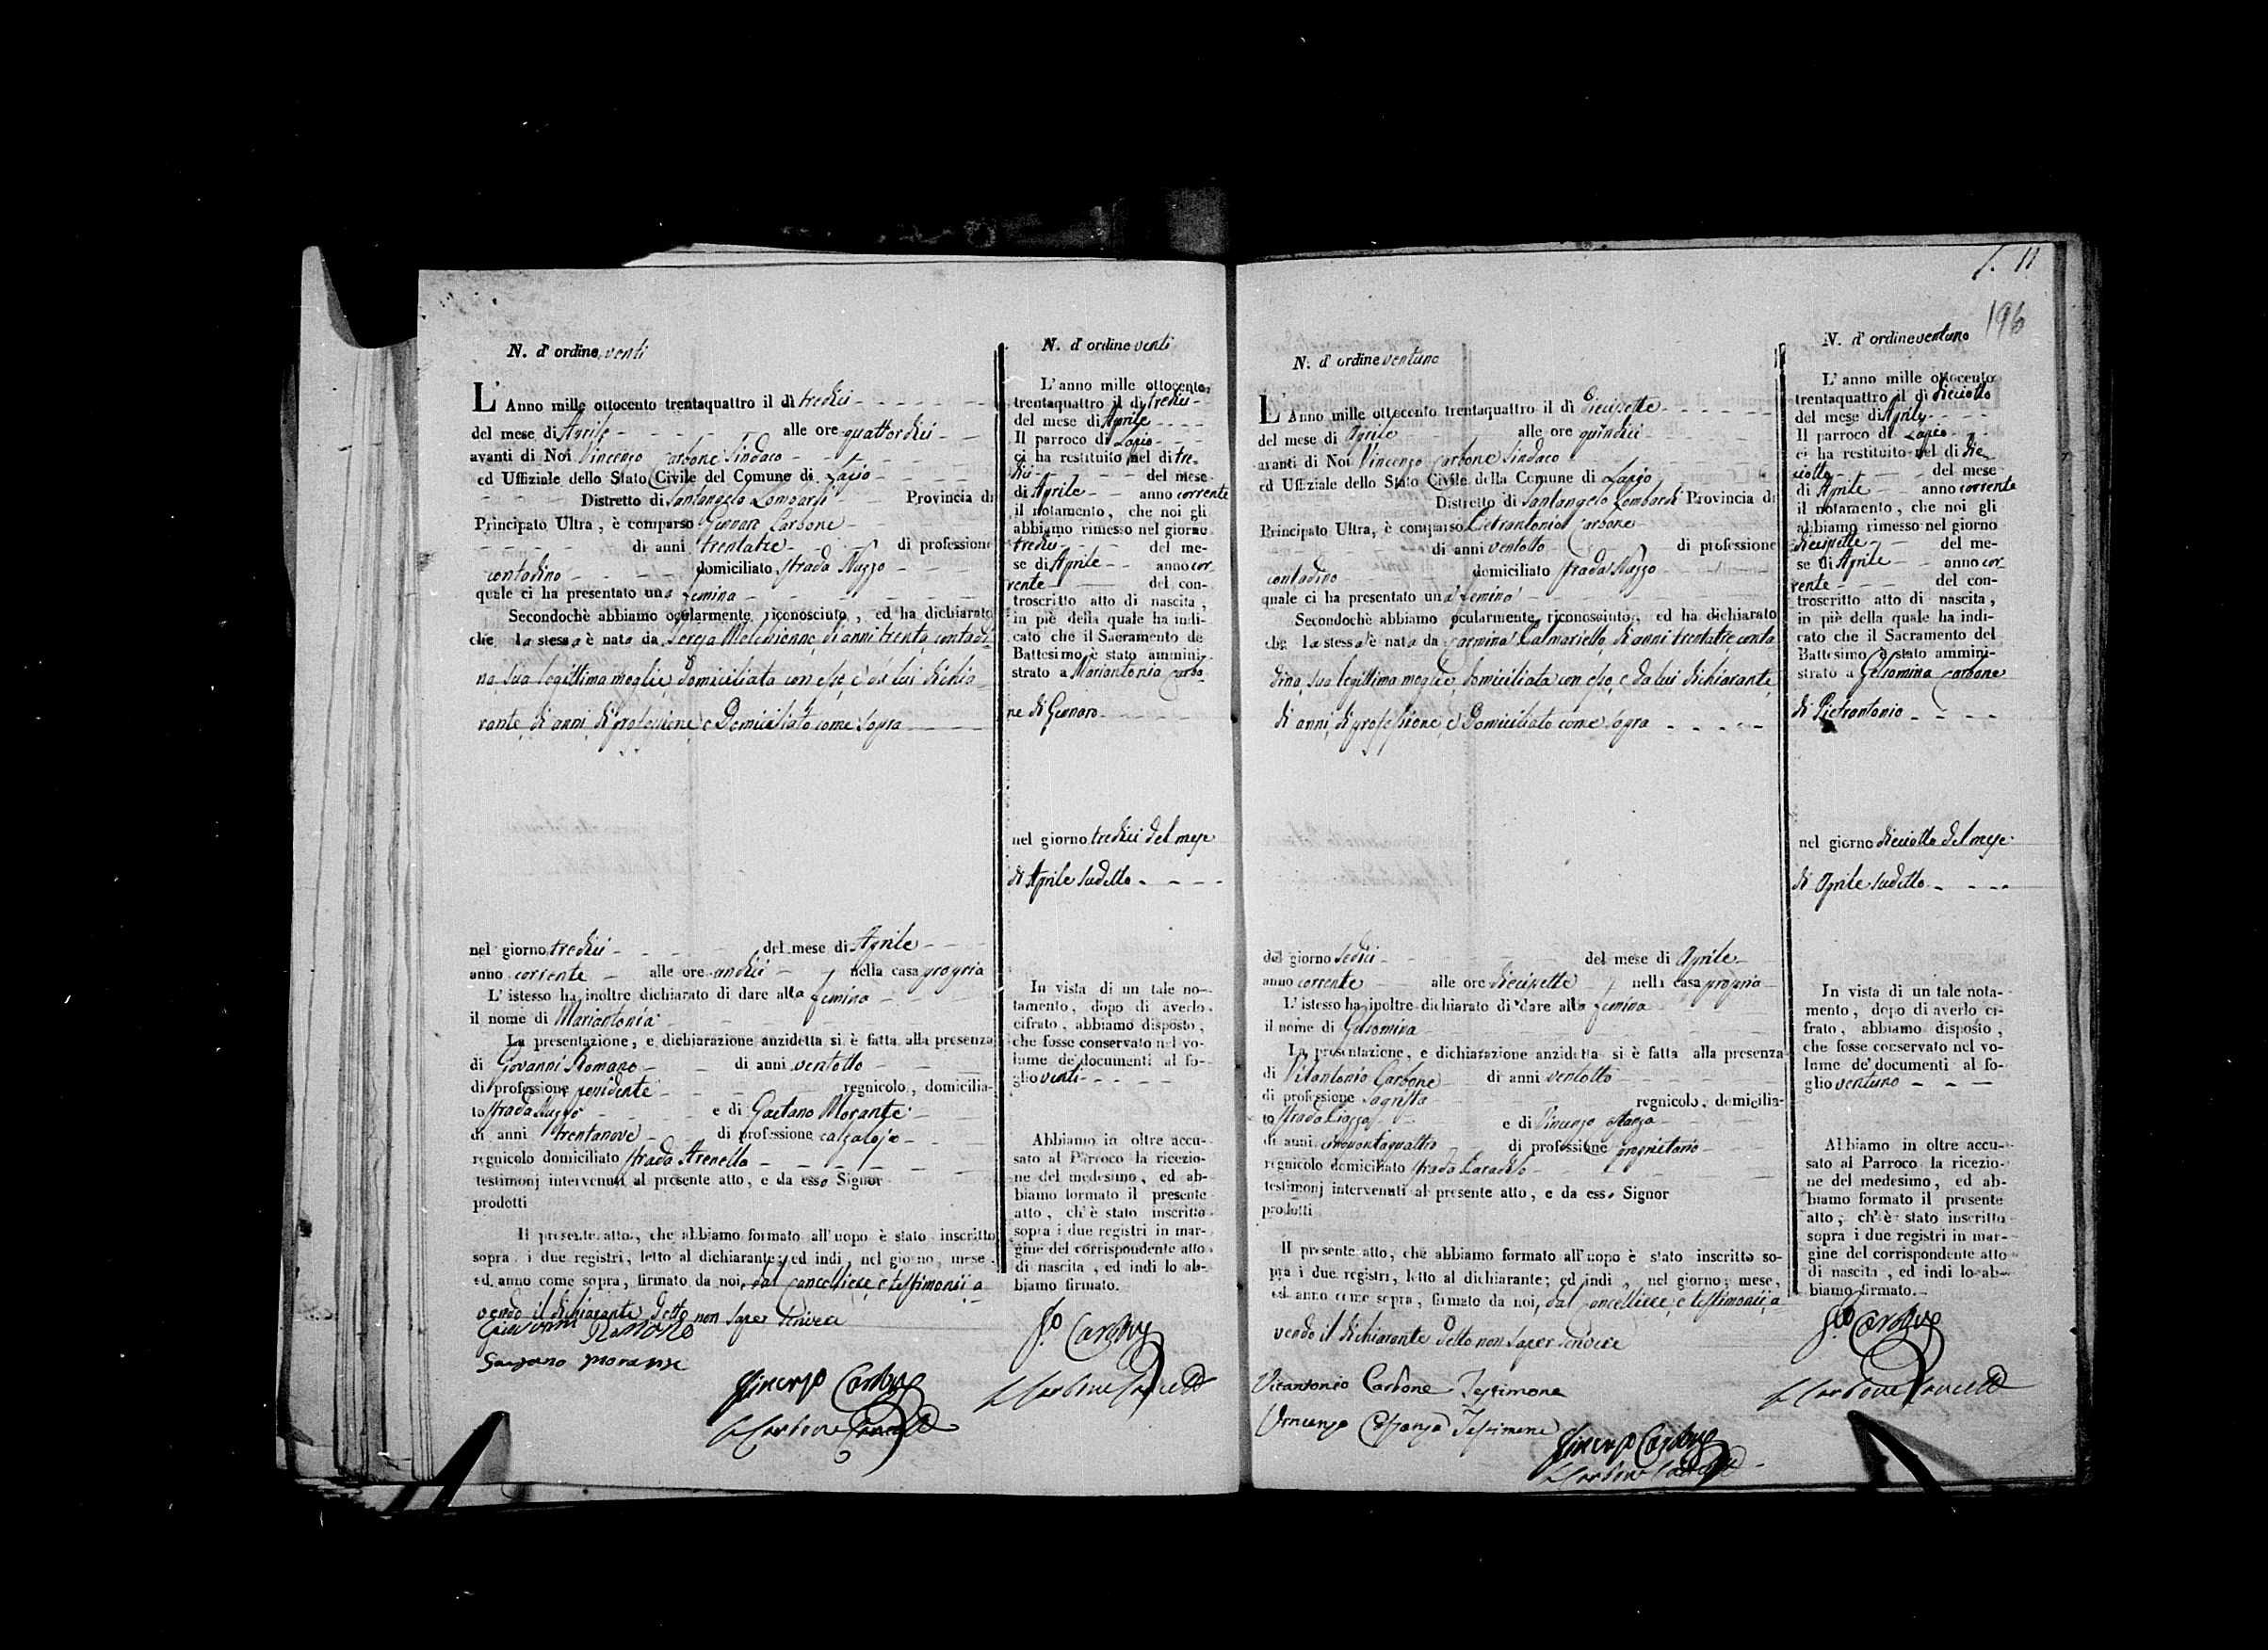 N. d'ordine venti
L'Anno mille ottocento trentaquattro il dì tredici
del mese di Aprile alle ore quattordici
avanti di Noi Vincenzo Carbone Sindaco
ed Uffiziale dello Stato Civile del Comune di Lapio
Distretto di Santangelo Lombardi Provincia di
Principato Ultra, è comparso Gennaro Carbone
di anni trentatre di professione
contadino domiciliato strada Nuzzo
quale ci ha presentato una femina
Secondochè abbiamo ocularmente riconosciuto, ed ha dichiarato
che la stessa è nata da Teresa Melchionno di anni trenta contadi
na, sua legittima moglie, domiciliata con esso, e da lui dichia
rante, di anni, di professione, e Domiciliato come sopra
nel giorno tredici del mese di Aprile
anno corrente alle ore undici nella casa propria
L'istesso ha inoltre dichiarato di dare alla femina
il nome di Mariantonia
La presentazione, e dichiarazione anzidetta si è fatta alla presenza
di Giovanni Romano di anni ventotto
di professione possidente regnicolo, domicilia-
to strada Nuzzo e di Gaetano Morante
di anni trentanove di professione calzolajo
regnicolo domiciliato strada Arenella
testimonj intervenuti al presente atto, e da esso Signor
prodotti
Il presente atto, che abbiamo formato all'uopo è stato inscritto
sopra i due registri, letto al dichiarante; ed indi, nel giorno, mese
ed anno come sopra, firmato da noi, dal cancelliere, e testimonii a
vendo il dichiarante detto non saper scrivere
Giovanni Romano
Gaetano Morante
Vincenzo Carbone
Carbone Cancell.
N. d'ordine venti
L'anno mille ottocento
trentaquattro il dì tredici
del mese di Aprile
Il parroco di Lapio
ci ha restituito nel dì tre-
dici del mese
di Aprile anno corrente
il notamento, che noi gli
abbiamo rimesso nel giorno
tredici del me-
se di Aprile anno cor
rente del con-
troscritto atto di nascita,
in piè della quale ha indi-
cato che il Sacramento de
Battesimo è stato ammini-
strato a Mariantonia Carbo
ne di Gennaro
nel giorno tredici del mese
di Aprile sudetto
In vista di un tale no-
tamento, dopo di averlo
cifrato, abbiamo disposto,
che fosse conservato nel vo-
lume de'documenti al fo-
glio venti
Abbiamo in oltre accu-
sato al Parroco la ricezio-
ne del medesimo, ed ab-
biamo formato il presente
atto, ch'è stato inscritto
sopra i due registri in mar-
gine del corrispondente atto
di nascita, ed indi lo ab-
biamo firmato.
Carbone
Carbone Cancell.
11
196
N. d'ordine ventuno
L'Anno mille ottocento trentaquattro il dì diecisette
del mese di Aprile alle ore quindici
avanti di Noi Vincenzo Carbone Sindaco
ed Uffiziale dello Stato Civile della Comune di Lapio
Distretto di Santangelo Lombardi Provincia di
Principato Ultra, è comparso Pietrantonio Carbone
di anni ventotto di professione
contadino domiciliato strada Nuzzo
quale ci ha presentato una femina
Secondochè abbiamo ocularmente riconosciuto, ed ha dichiarato
che la stessa è nata da Carmina Palmariello, di anni trentatre, conta
dina, sua legittima moglie, domiciliata con esso, e da lui dichiarante,
di anni, di professione, e Domiciliato come sopra
del giorno sedici del mese di Aprile
anno corrente alle ore diecisette nella casa propria
L'istesso ha inoltre dichiarato di dare alla femina
il nome di Gelsomina
La presentazione, e dichiarazione anzidetta si è fatta alla presenza
di Vitantonio Carbone di anni ventotto
di professione sagrista regnicolo, domicilia-
to strada Piazza e di Vincenzo
di anni cinquantaquattro di professione proprietario
regnicolo domiciliato strada
testimonj intervenuti al presente atto, e da esso Signor
prodotti
Il presente atto, che abbiamo formato all'uopo è stato inscritto so-
pra i due registri, letto al dichiarante; ed indi, nel giorno, mese,
ed anno come sopra, firmato da noi, dal cancelliere, e testimonii a
vendo il dichiarante detto non saper scrivere
Vitantonio Carbone Testimone
Vincenzo Testimone
Vincenzo Carbone
Carbone Cancell.
N. d'ordine ventuno
L'anno mille ottocento
trentaquattro il dì dieciotto
del mese di Aprile
Il parroco di Lapio
ci ha restituito nel dì die-
ciotto del mese
di Aprile anno corrente
il notamento, che noi gli
abbiamo rimesso nel giorno
diecisette del me-
se di Aprile anno cor
rente del con-
troscritto atto di nascita,
in piè della quale ha indi-
cato che il Sacramento del
Battesimo è stato ammini-
strato a Gelsomina Carbone
di Pietrantonio
nel giorno dieciotto del mese
di Aprile sudetto
In vista di un tale nota-
mento, dopo di averlo ci-
frato, abbiamo disposto,
che fosse conservato nel vo-
lume de'documenti al fo-
glio ventuno
Abbiamo in oltre accu-
sato al Parroco la ricezio-
ne del medesimo, ed ab-
biamo formato il presente
atto, ch'è stato inscritto
sopra i due registri in mar-
gine del corrispondente atto
di nascita, ed indi lo ab-
biamo firmato.
Carbone
Carbone Cancell.